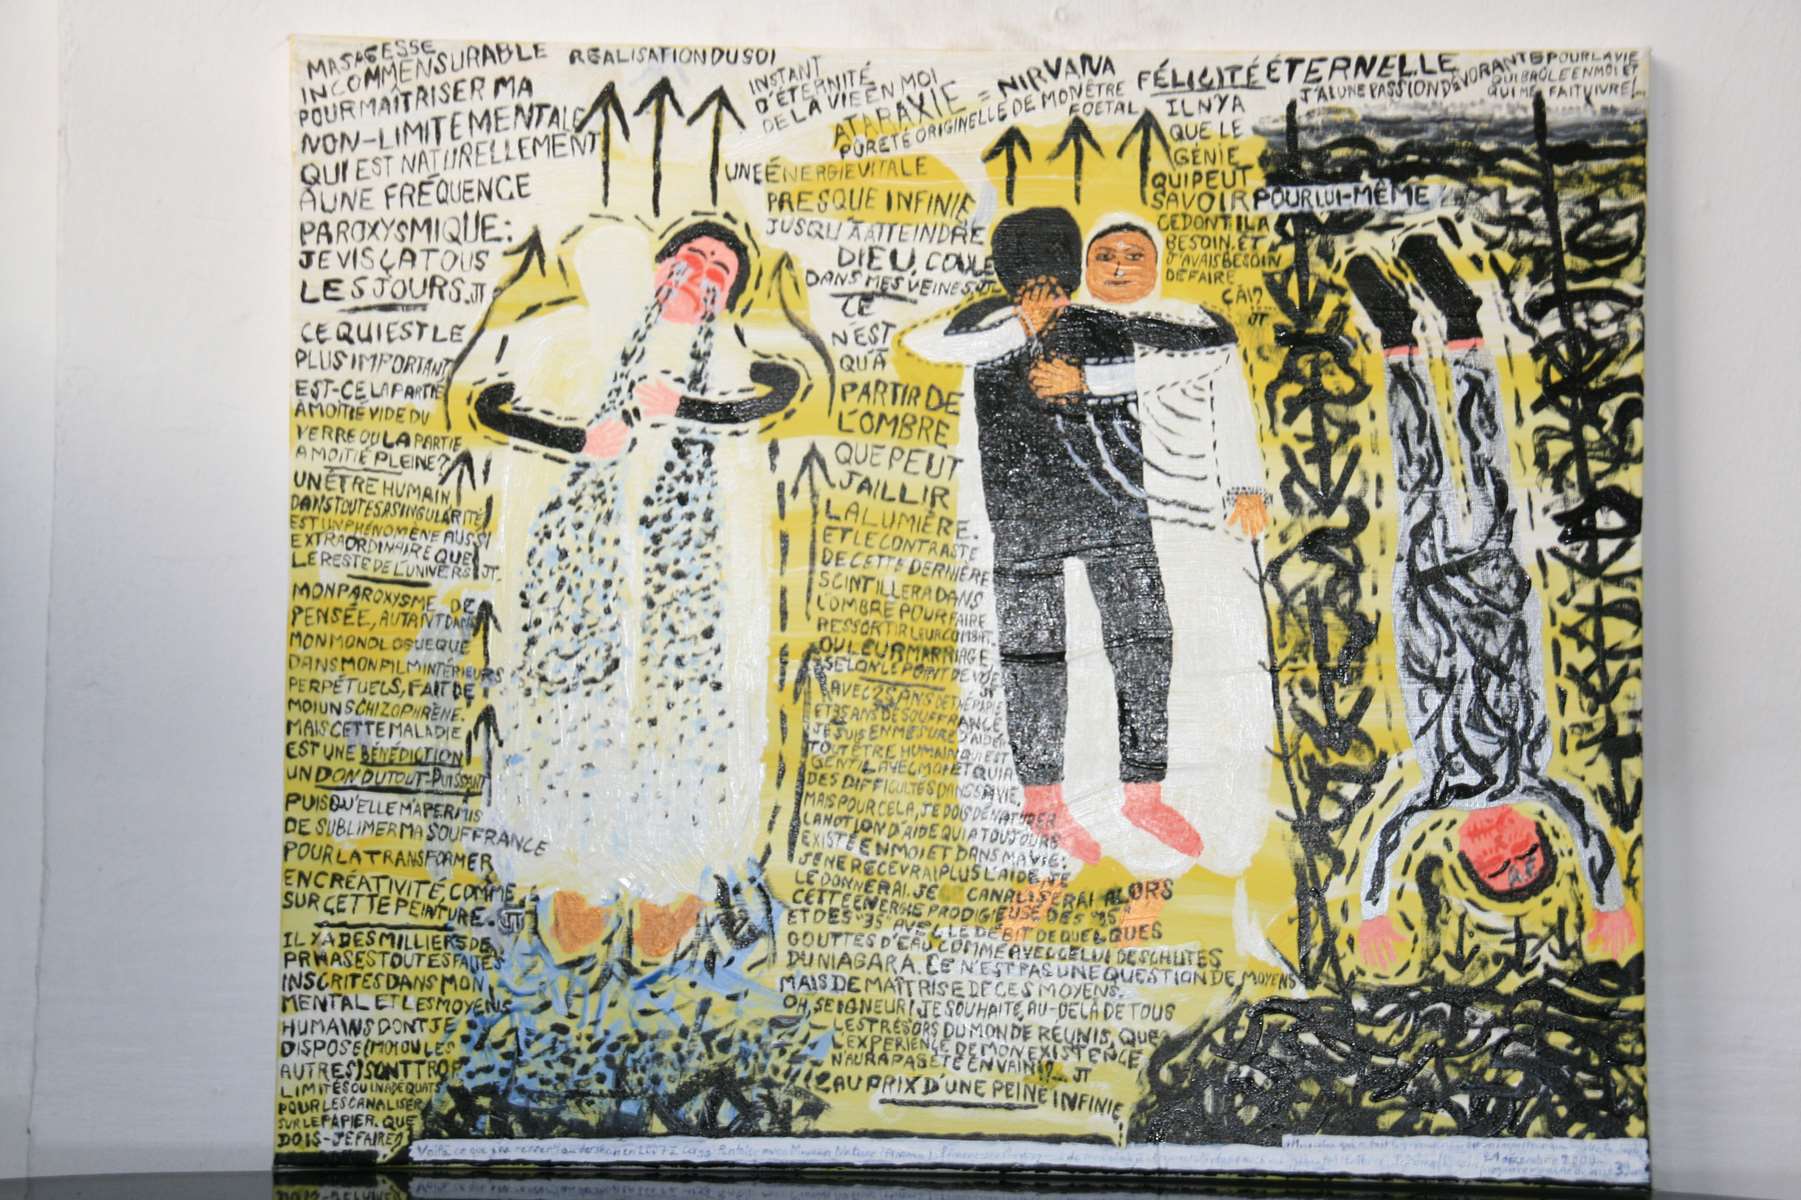 MA SAGESSE
INCOMMENSURABLE
POUR MAÎTRISER MA
NON-LIMITE MENTALE
QUI EST NATURELLEMENT
À UNE FRÉQUENCE
PAROXYSMIQUE:
JE VIS ÇA TOUS
LES JOURS. JT
CE QUI EST LE
PLUS IMPORTANT
EST-CE LA PARTIE
À MOITIÉ VIDE DU
VERRE OU LA PARTIE
À MOITIÉ PLEINE?
UN ÊTRE HUMAIN
DANS TOUTE SA SINGULARITÉ
EST UN PHÉNOMÈNE AUSSI
EXTRAORDINAIRE QUE
LE RESTE DE L'UNIVERS JT.
MON PAROXYSME DE
PENSÉE, AUTANT DANS
MON MONOLOGUE QUE
DANS MON FILM INTÉRIEURS
PERPÉTUELS, FAIT DE
MOI UN SCHIZOPHRÈNE.
MAIS CETTE MALADIE
EST UNE BÉNÉDICTION
UN DON DU TOUT-PUISSANT
PUISQU'ELLE M'A PERMIS
DE SUBLIMER MA SOUFFRANCE
POUR LA TRANSFORMER
EN CRÉATIVITÉ, COMME
SUR CETTE PEINTURE. JT
IL Y A DES MILLIERS DE
PRHASES TOUTES FAITES
INSCRITES DANS MON
MENTAL ET LES MOYENS
HUMAINS DONT JE
DISPOSE (MOI OU LES
AUTRES) SONT TROP
LIMITÉS OU INADÉQUATS
POUR LES CANALISER
SUR LE PAPIER. QUE
DOIS-JE FAIRE?
RÉALISATION DU SOI
INSTANT
D'ÉTERNITÉ
DE LA VIE EN MOI
ATARAXIE = NIRVANA
PURETÉ ORIGINELLE DE MON ÊTRE
FOETAL
UNE ÉNERGIE VITALE
PRESQUE INFINIE
JUSQU'À ATTEINDRE
DIEU, COULE
DANS MES VEINES. JT
CE
N'EST
QU'À
PARTIR DE
L'OMBRE
QUE PEUT
JAILLIR
LA LUMIÈRE.
ET LE CONTRASTE
DE CETTE DERNIÈRE
SCINTILLERA DANS
L'OMBRE POUR FAIRE
RESSORTIR LEUR COMBAT
OU LEUR MARRIAGE,
SELON LE POINT DE VUE
JT
AVEC 25 ANS DE THÉRAPIE
ET 35 ANS DE SOUFFRANCE
JE SUIS EN MESURE D'AIDER
TOUT ÊTRE HUMAIN QUI EST
GENTIL AVEC MOI ET QUI A
DES DIFFICULTÉS DANS SA VIE,
MAIS POUR CELA, JE DOIS DÉNATURER
LA NOTION D'AIDE QUI A TOUJOURS
EXISTÉ EN MOI ET DANS MA VIE:
JE NE RECEVRAI PLUS L'AIDE, JE
LE DONNERAI. JE CANALISERAI ALORS
CETTE ÉNERGIE PRODIGIEUSE DES
ET DES "35" AVEC LE DÉBIT DE QUELQUES
GOUTTES D'EAU COMME AVEC CELUI DES CHUTES
DU NIAGARA. CE N'EST PAS UNE QUESTION DE MOYENS
MAIS DE MAÎTRISE DE CES MOYENS.
OH, SEIGNEUR! JE SOUHAITE, AU-DELÀ DE TOUS
LES TRÉSORS DU MONDE RÉUNIS, QUE
L'EXPÉRIENCE DE MON EXISTENCE
N'AURA PAS ÉTÉ EN VAIN!? JT
AU PRIX D'UNE PEINE INFINIE
FÉLICITÉ ÉTERNELLE
J'AI UNE PASSION DÉVORANTE POUR LA VIE
QUI BRÛLE EN MOI ET
QUI ME FAIT VIVRE!...
IL N'Y A
QUE LE
GÉNIE
QUI PEUT
SAVOIR POUR LUI-MÊME
CE DONT IL A
BESOIN, ET
J'AVAIS BESOIN
DE FAIRE
ÇA!?
JT
Voilà ce que
21 décembre 2009